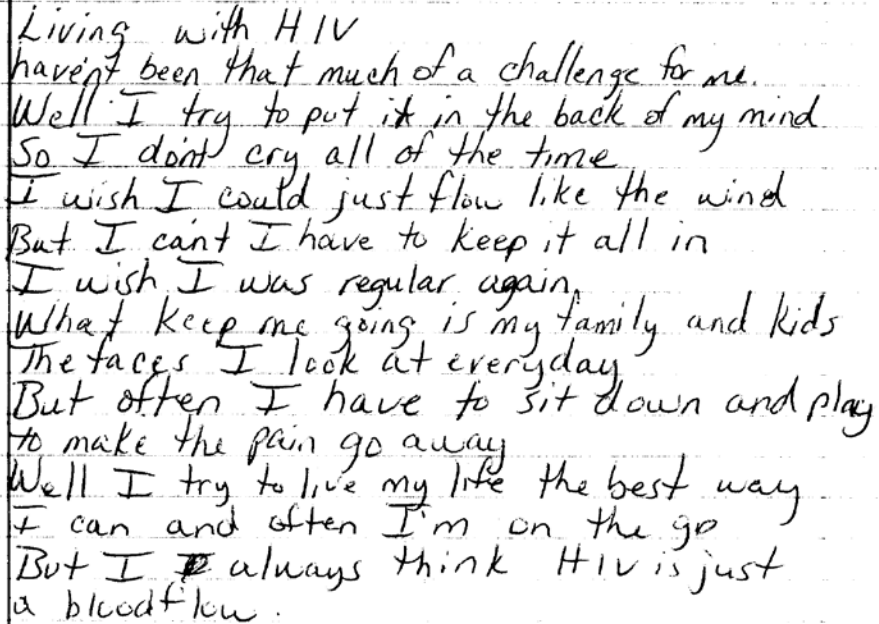 Living with HIV
haven't been that much of a challenge for me.
Well I try to put it in the back of my mind
So I don't cry all of the time
I wish I could just flow like the wind
But I can't I have to keep it all in
I wish I was regular again.
What keep me going is my family and kids
The faces I look at everyday
But often I have to sit down and play
to make the pain go away
Well I try to live my life the best way
I can and often I'm on the go
But I always think HIV is just
a bloodflow.